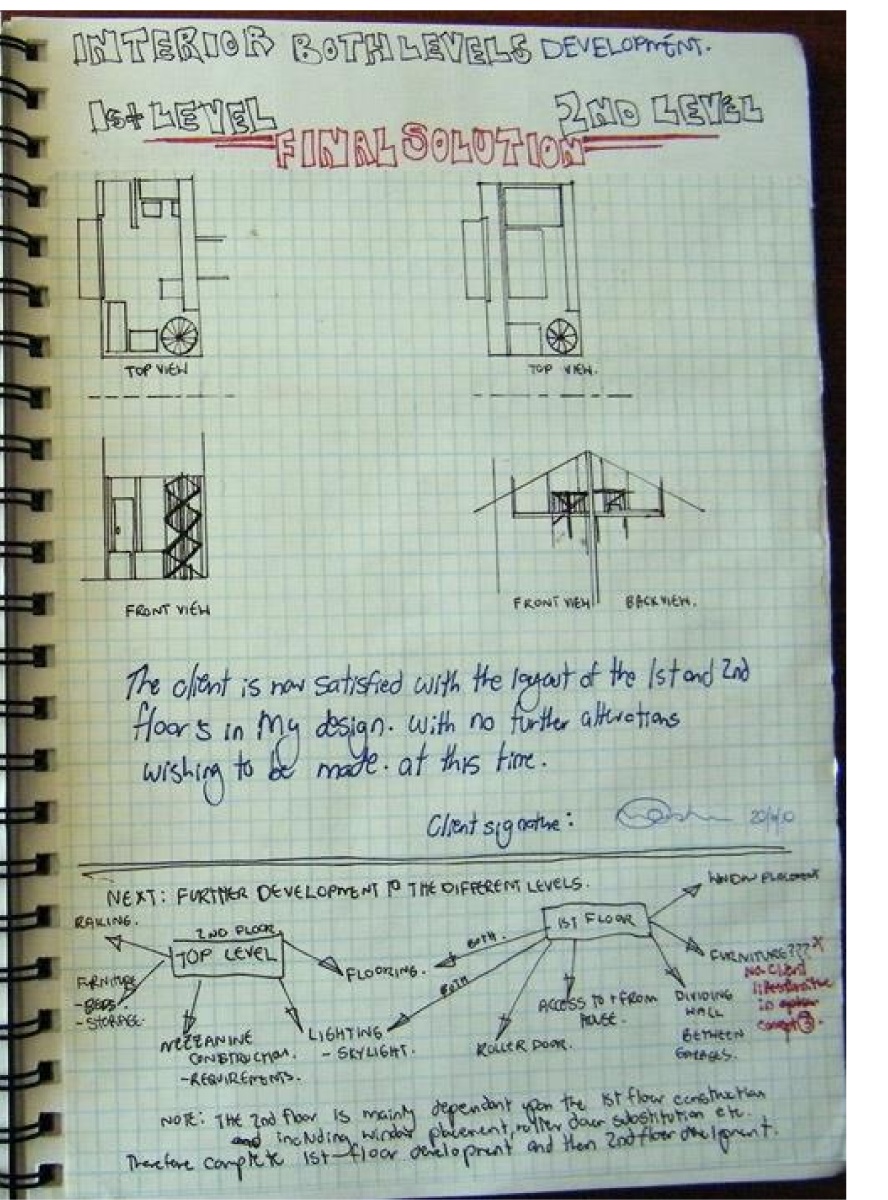 INTERIOR BOTH LEVELS DEVELOPMENT.
1st LEVEL 2ND LEVEL
FINAL SOLUTION
TOP VIEW TOP VIEW.
FRONT VIEW FRONT VIEW BACK VIEW.
The client is now satisfied with the layout of the 1st and 2nd
floor's in my design. with no further alterations
wishing to be made. at this time.
Client signature:
NEXT: FURTHER DEVELOPMENT TO THE DIFFERENT LEVELS.
WINDOW PLACEMENT
RAILING.
2ND FLOOR
TOP LEVEL
BOTH.
1ST FLOOR
FLOORING.
BOTH
FURNITURE??? X
No. Client
in option
concept 3.
FURNITURE
-BEDS.
-STORAGE.
MEZZANINE
CONSTRUCTION.
-REQUIREMENTS.
LIGHTING
- SKYLIGHT.
ROLLER DOOR.
ACCESS TO + FROM
HOUSE.
DIVIDING
WALL
BETWEEN
GARAGES.
NOTE: THE 2nd floor is mainly dependant upon the 1st floor construction
and including window placement, roller door substitution etc.
Therefore complete 1st-floor development and then 2nd floor development.